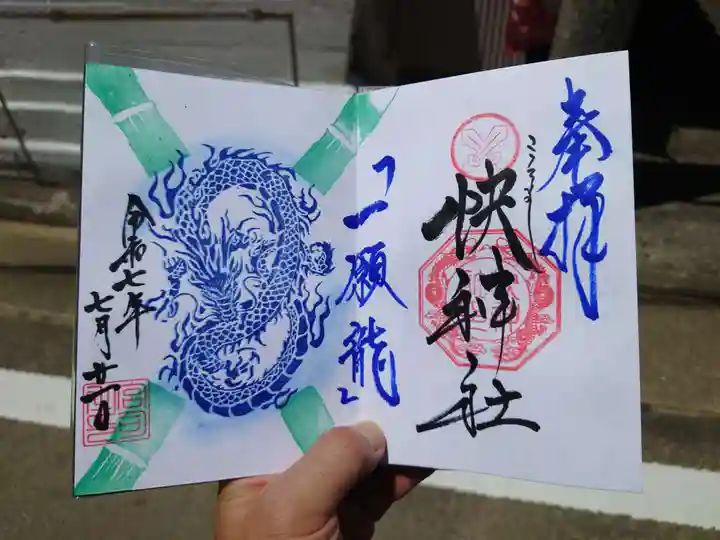 奉拝
こころよし
快神社
「一願龍」
令和七年
七月廿一日